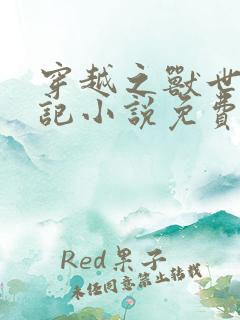 穿越之獸世
記小說免費
Red果子
未经同意禁止转载